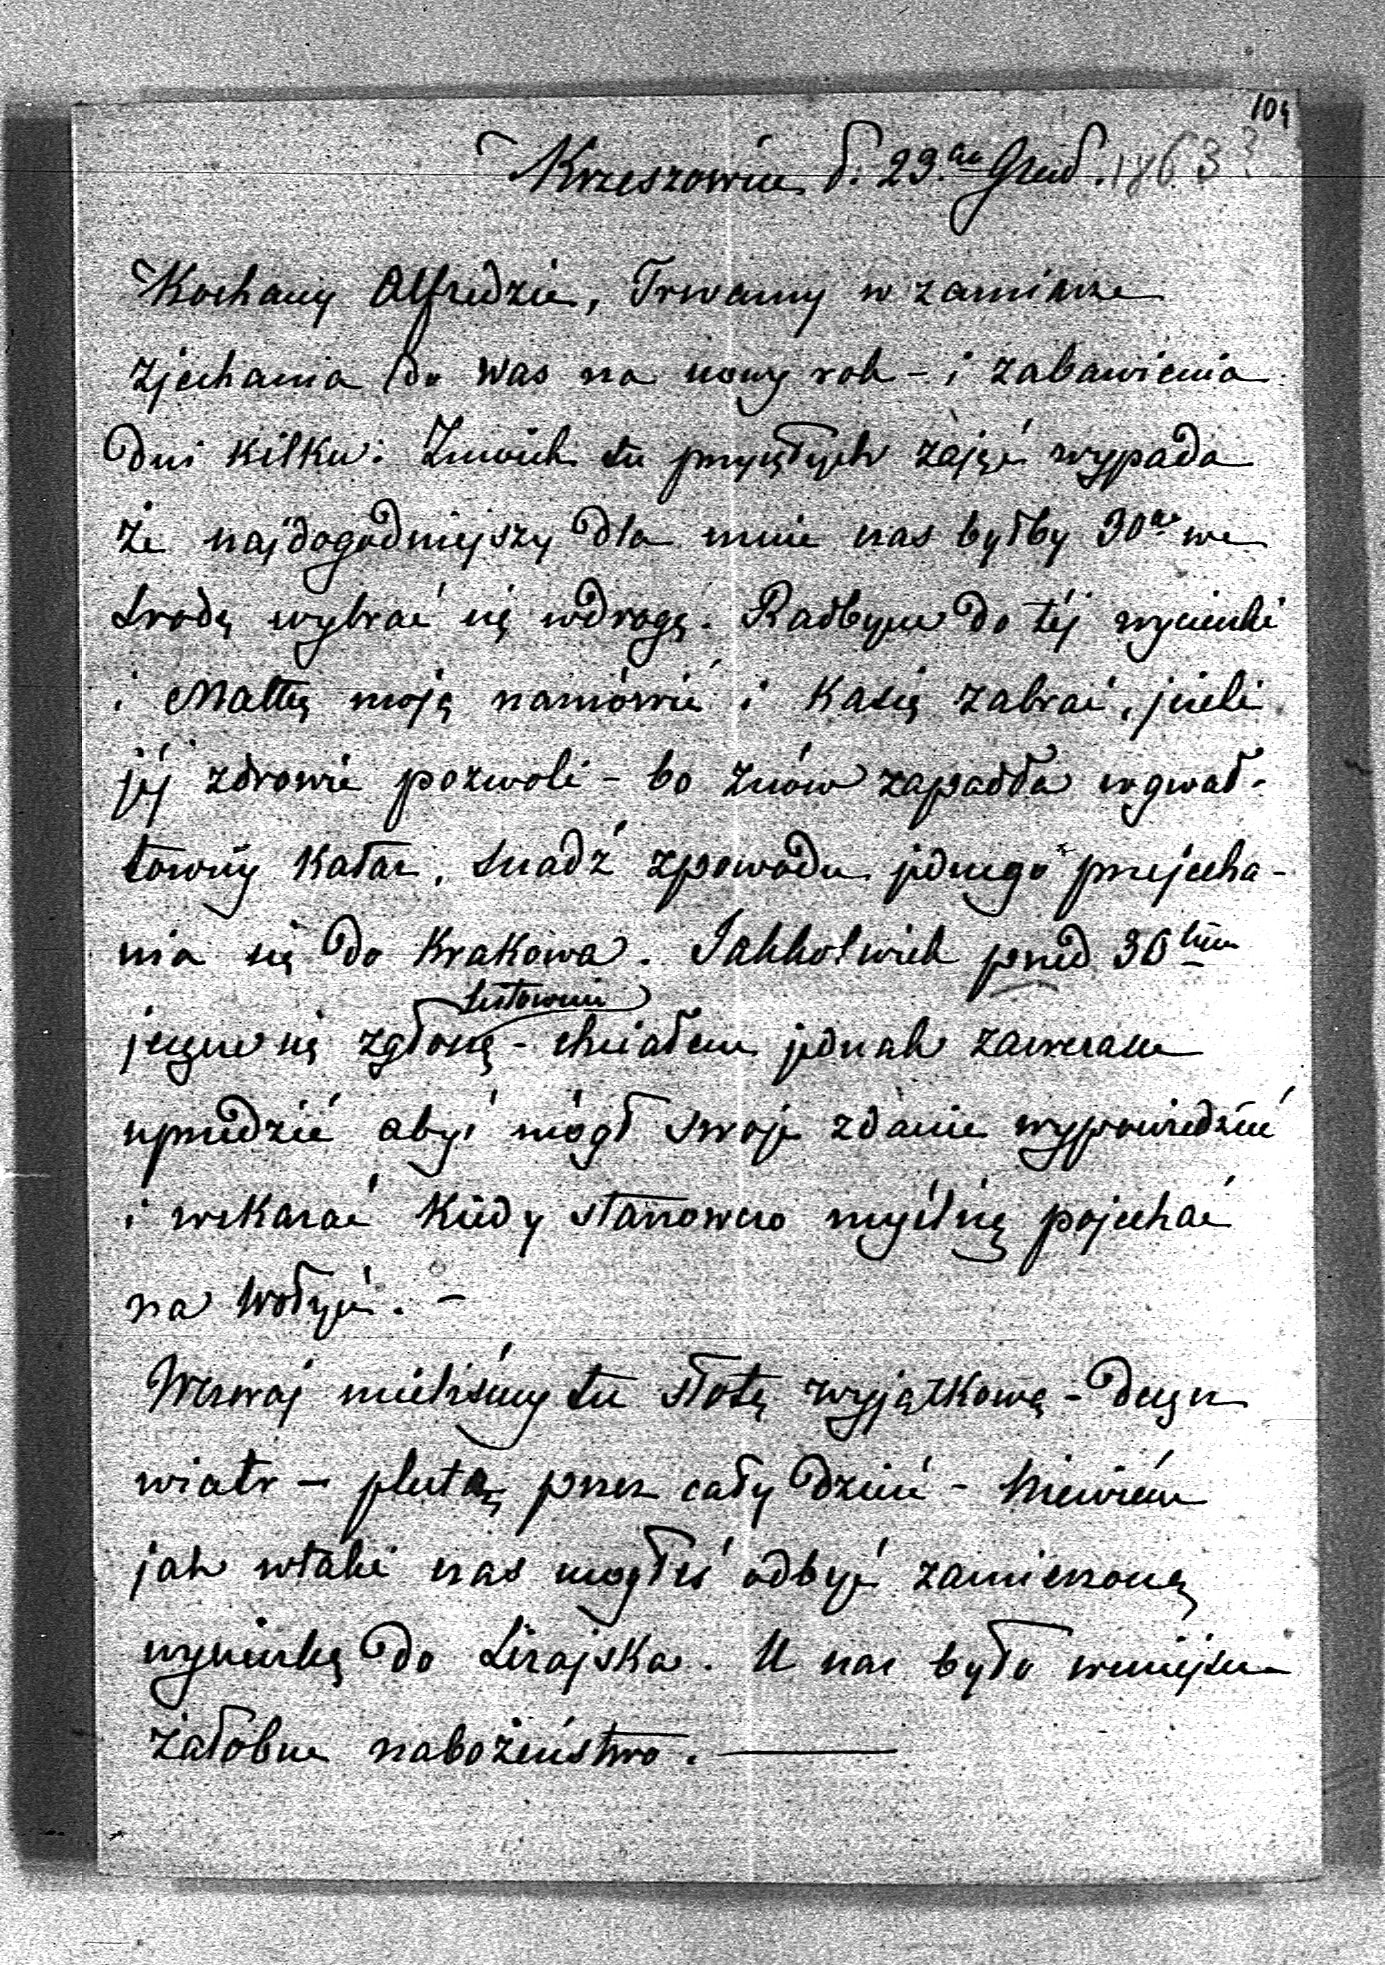 104
Krzeszowice d. 23.go Grud. 1863?
Kochany Alfredzie, Trwamy w zamiarze
zjechania do Was na nowy rok - i zabawienia
dni kilku. Z moich tu przyszłych zajęć wypada
że najdogodniejszy dla mnie czas byłby 30go we
środę wybrać się w drogę. Radbym do téj wycieczki
i Matkę moją namówić i Kasię zabrać, jeżeli
jéj zdrowie pozwoli - bo znów zapadła w gwał-
towny Katar, snadź z powodu jednego przejecha-
nia się do Krakowa. Jakkolwiek przed 30tym
Listownie
jeszcze się zgłoszę - chciałem jednak zawczasu
uprzedzić abyś mógł swoje zdanie wypowiedzieć
i wskazać kiedy stanowczo myślisz pojechać
na Wołyń. -
Wczoraj mieliśmy tu słotę wyjątkową - deszcz
wiatr - plutę przez cały dzień - Niewiem
jak w taki czas mogłeś odbyć zamierzoną
wycieczkę do Leżajska. U nas było w miejscu
żałobne nabożeństwo. -